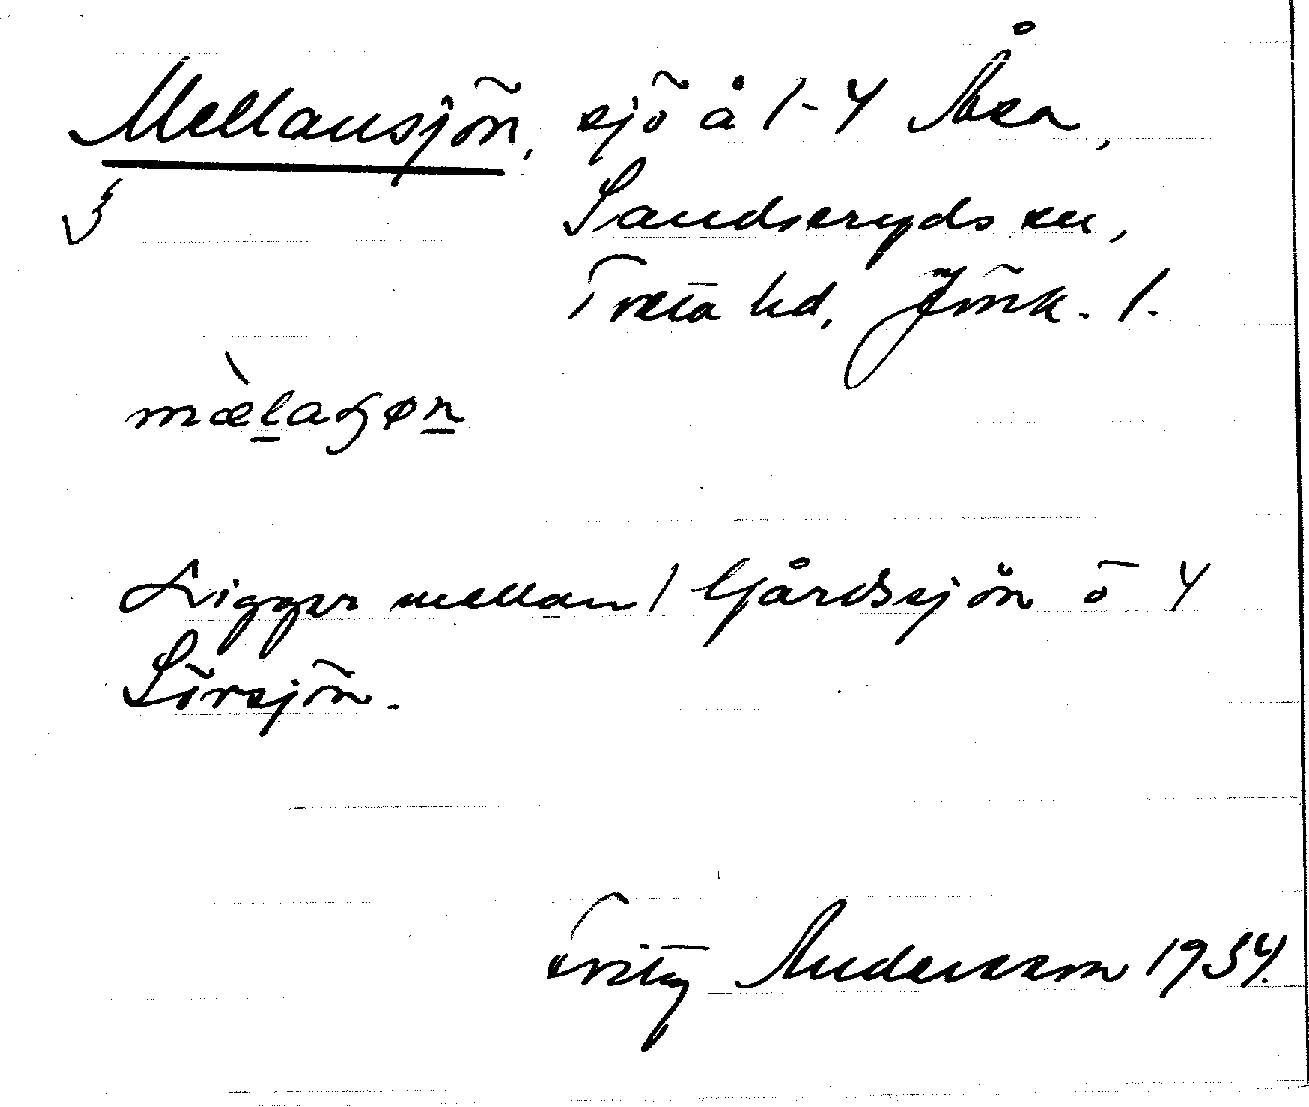 Mellansjön, sjö å 1-4 Åsa,
Sandseryds sn,
Tveta hd, Jönk. l.
mæ̀l̲aʒøn̲
Ligger mellan 1 Gårdssjön o 4
Sörsjön.
Fritz Andersson 1934.